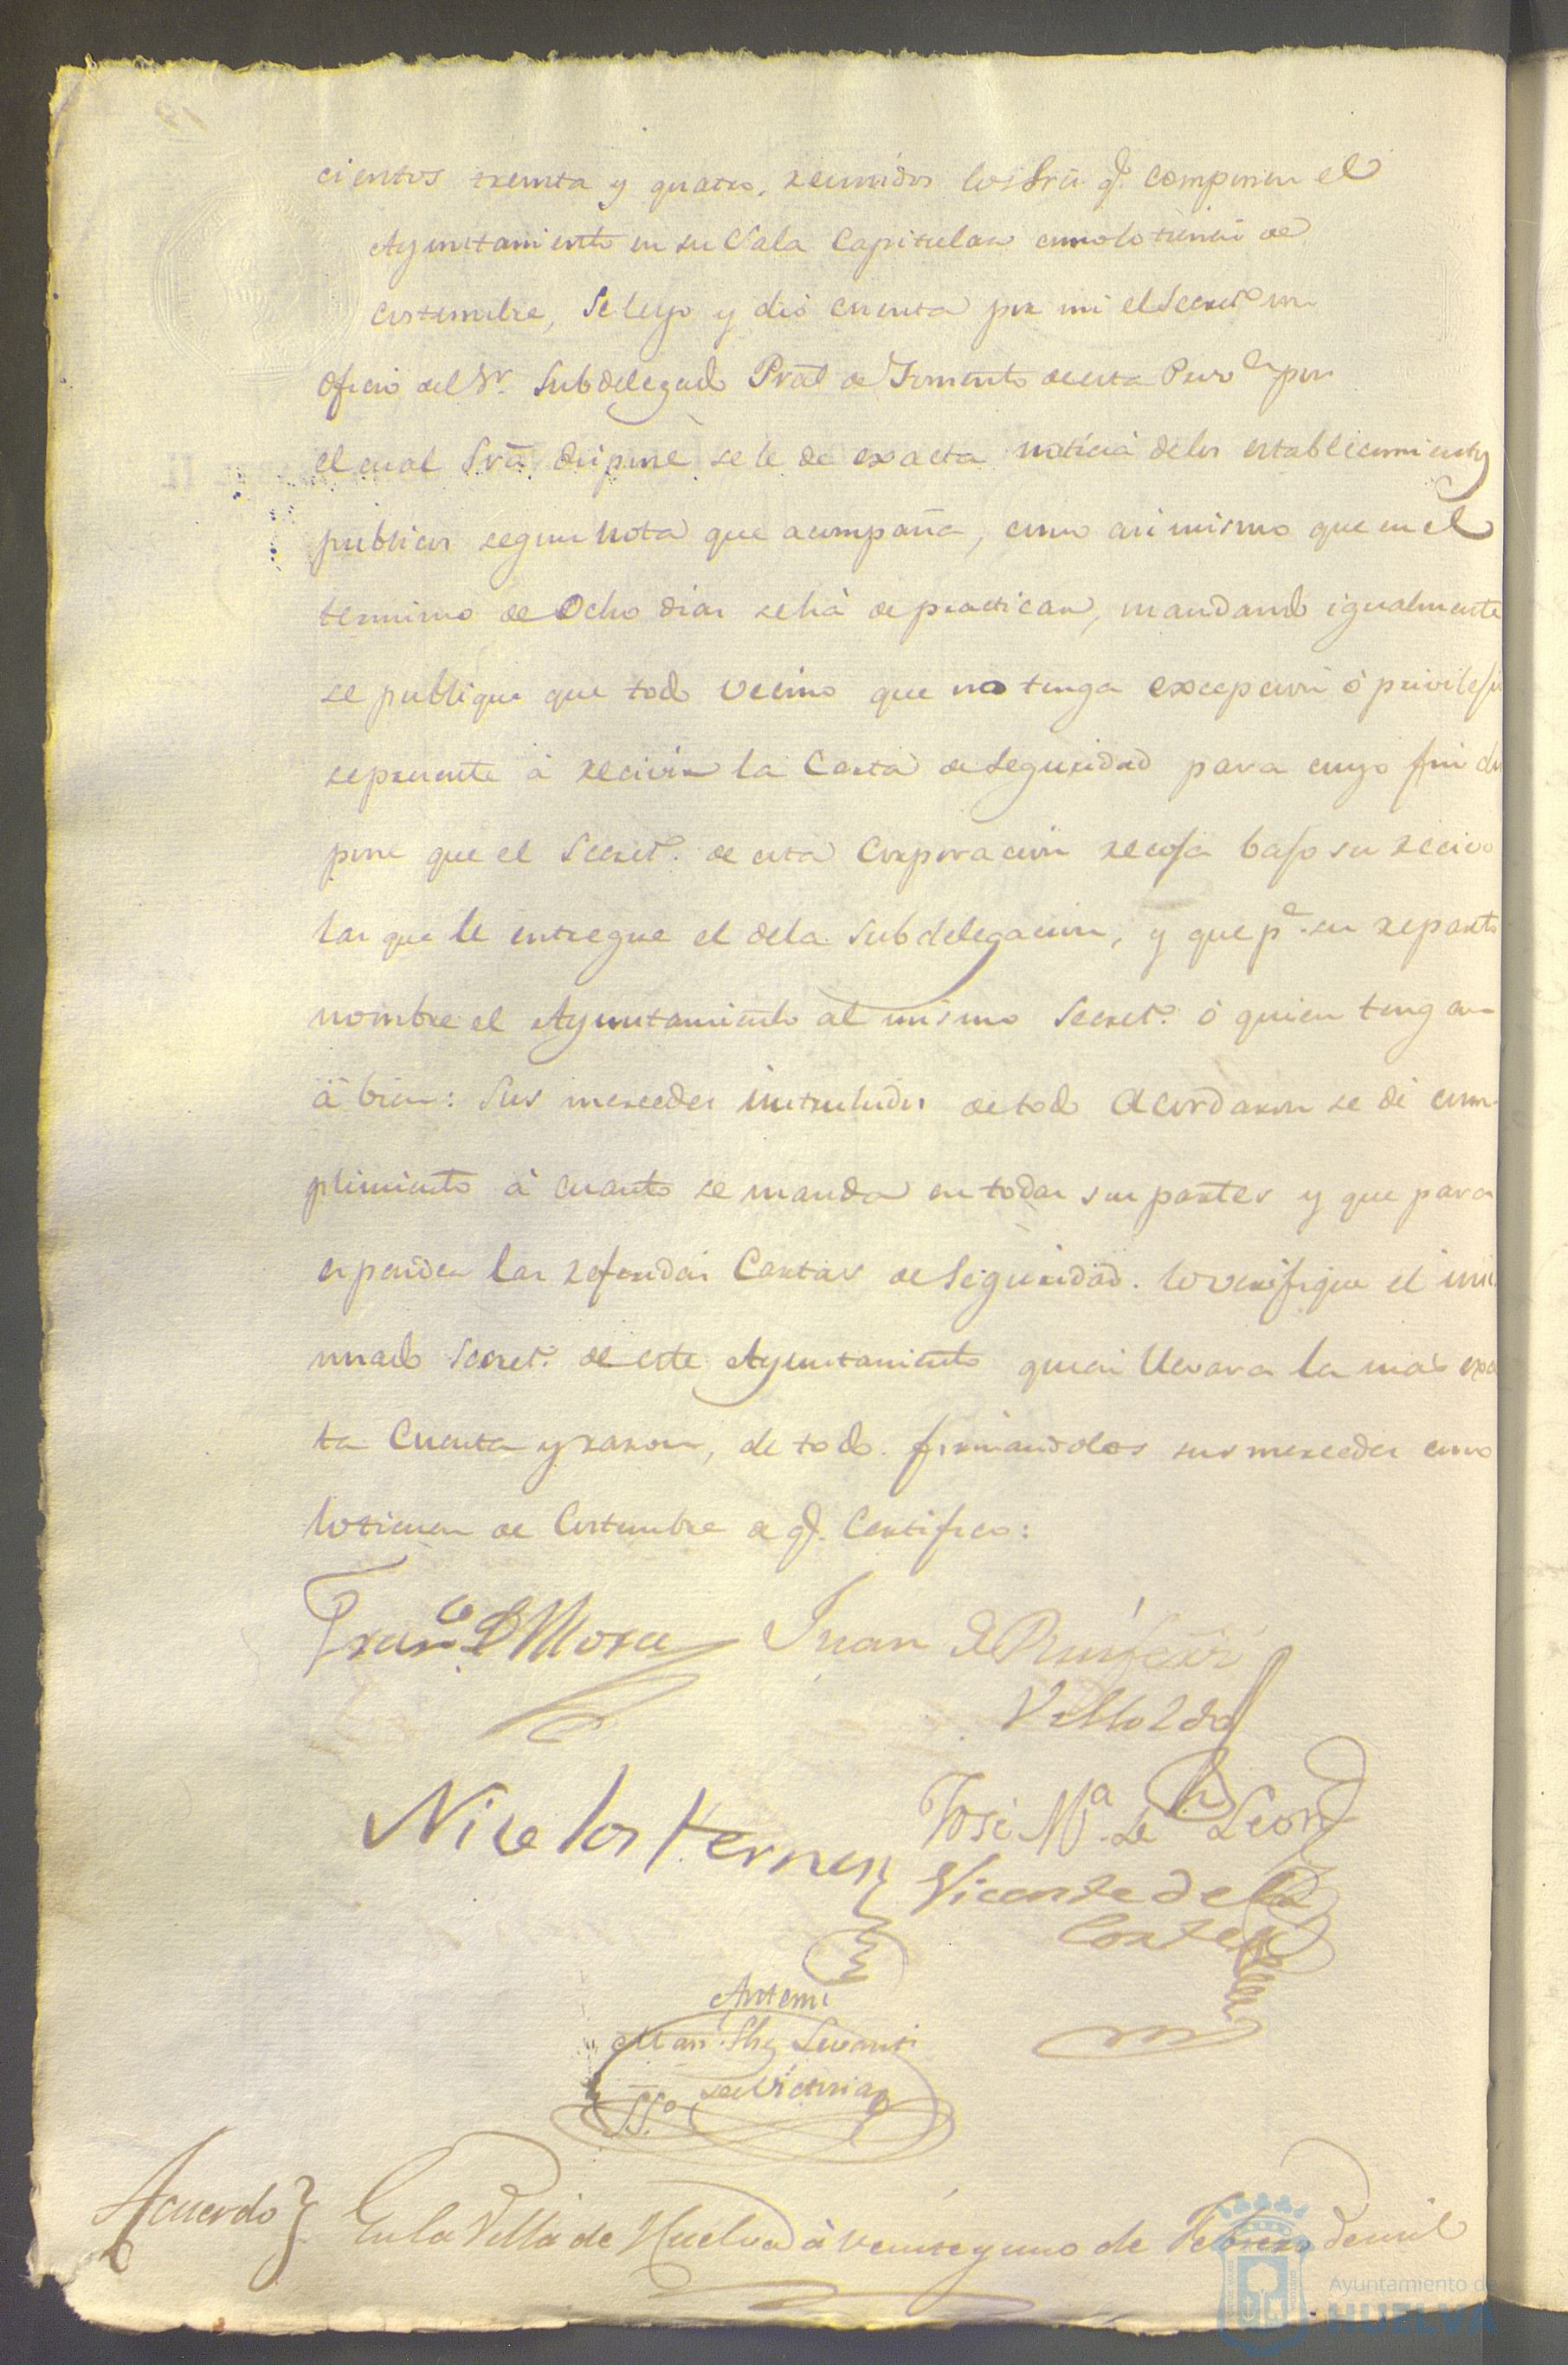 cientos treinta y quatro, reunidos los Srēs q.ᵉ componen el
Ayuntamiento en su Sala Capitular como lo tienen de
costumbre, se leyo y dió cuenta por mi el Secret.º un
oficio del Sr. Subdelegado Pral de Fomento de esta Prov.ᵃ por
el cual Sria dispone se le de exacta noticia delos establecimientos
publicos segun nota que acompaña, como asi mismo que en el
termino de Ocho dias se há de practicar, mandando igualmente
se publique que todo vecino que no tenga excepcion ó privilejio
se presente á recivir la Carta de Seguridad para cuyo fin dis
pone que el Secret.º de esta Corporacion recoja bajo su recivo
las que le entregue el dela Subdelegacion, y que p.ᵃ su reparto
nombre el Ayuntamiento al mismo Secret.º ó quien tengan
á bien: Sus mercedes instruhidos de todo Acordaron se dé cum-
plimiento á cuanto se manda en todas sus partes y que para
espender las referidas Cartas de Seguridad. lo verifique el
Secret.º de este Ayuntamiento quien llevara la mas exac
ta Cuenta y razon, de todo. firmandolos sus mercedes como
lo tienen de Costumbre de q.ᵉ Certifico:
Fran.ᶜᵒ D Mora Juan
Nicolas Hernz José M.ª de Leon
Vicente de la
Corte
Antemi
Man.
de Victoria
SSº
Acuerdo} En la Villa de Huelva á veinte y uno de Febrero de mil
Ayuntamiento de
HUELVA